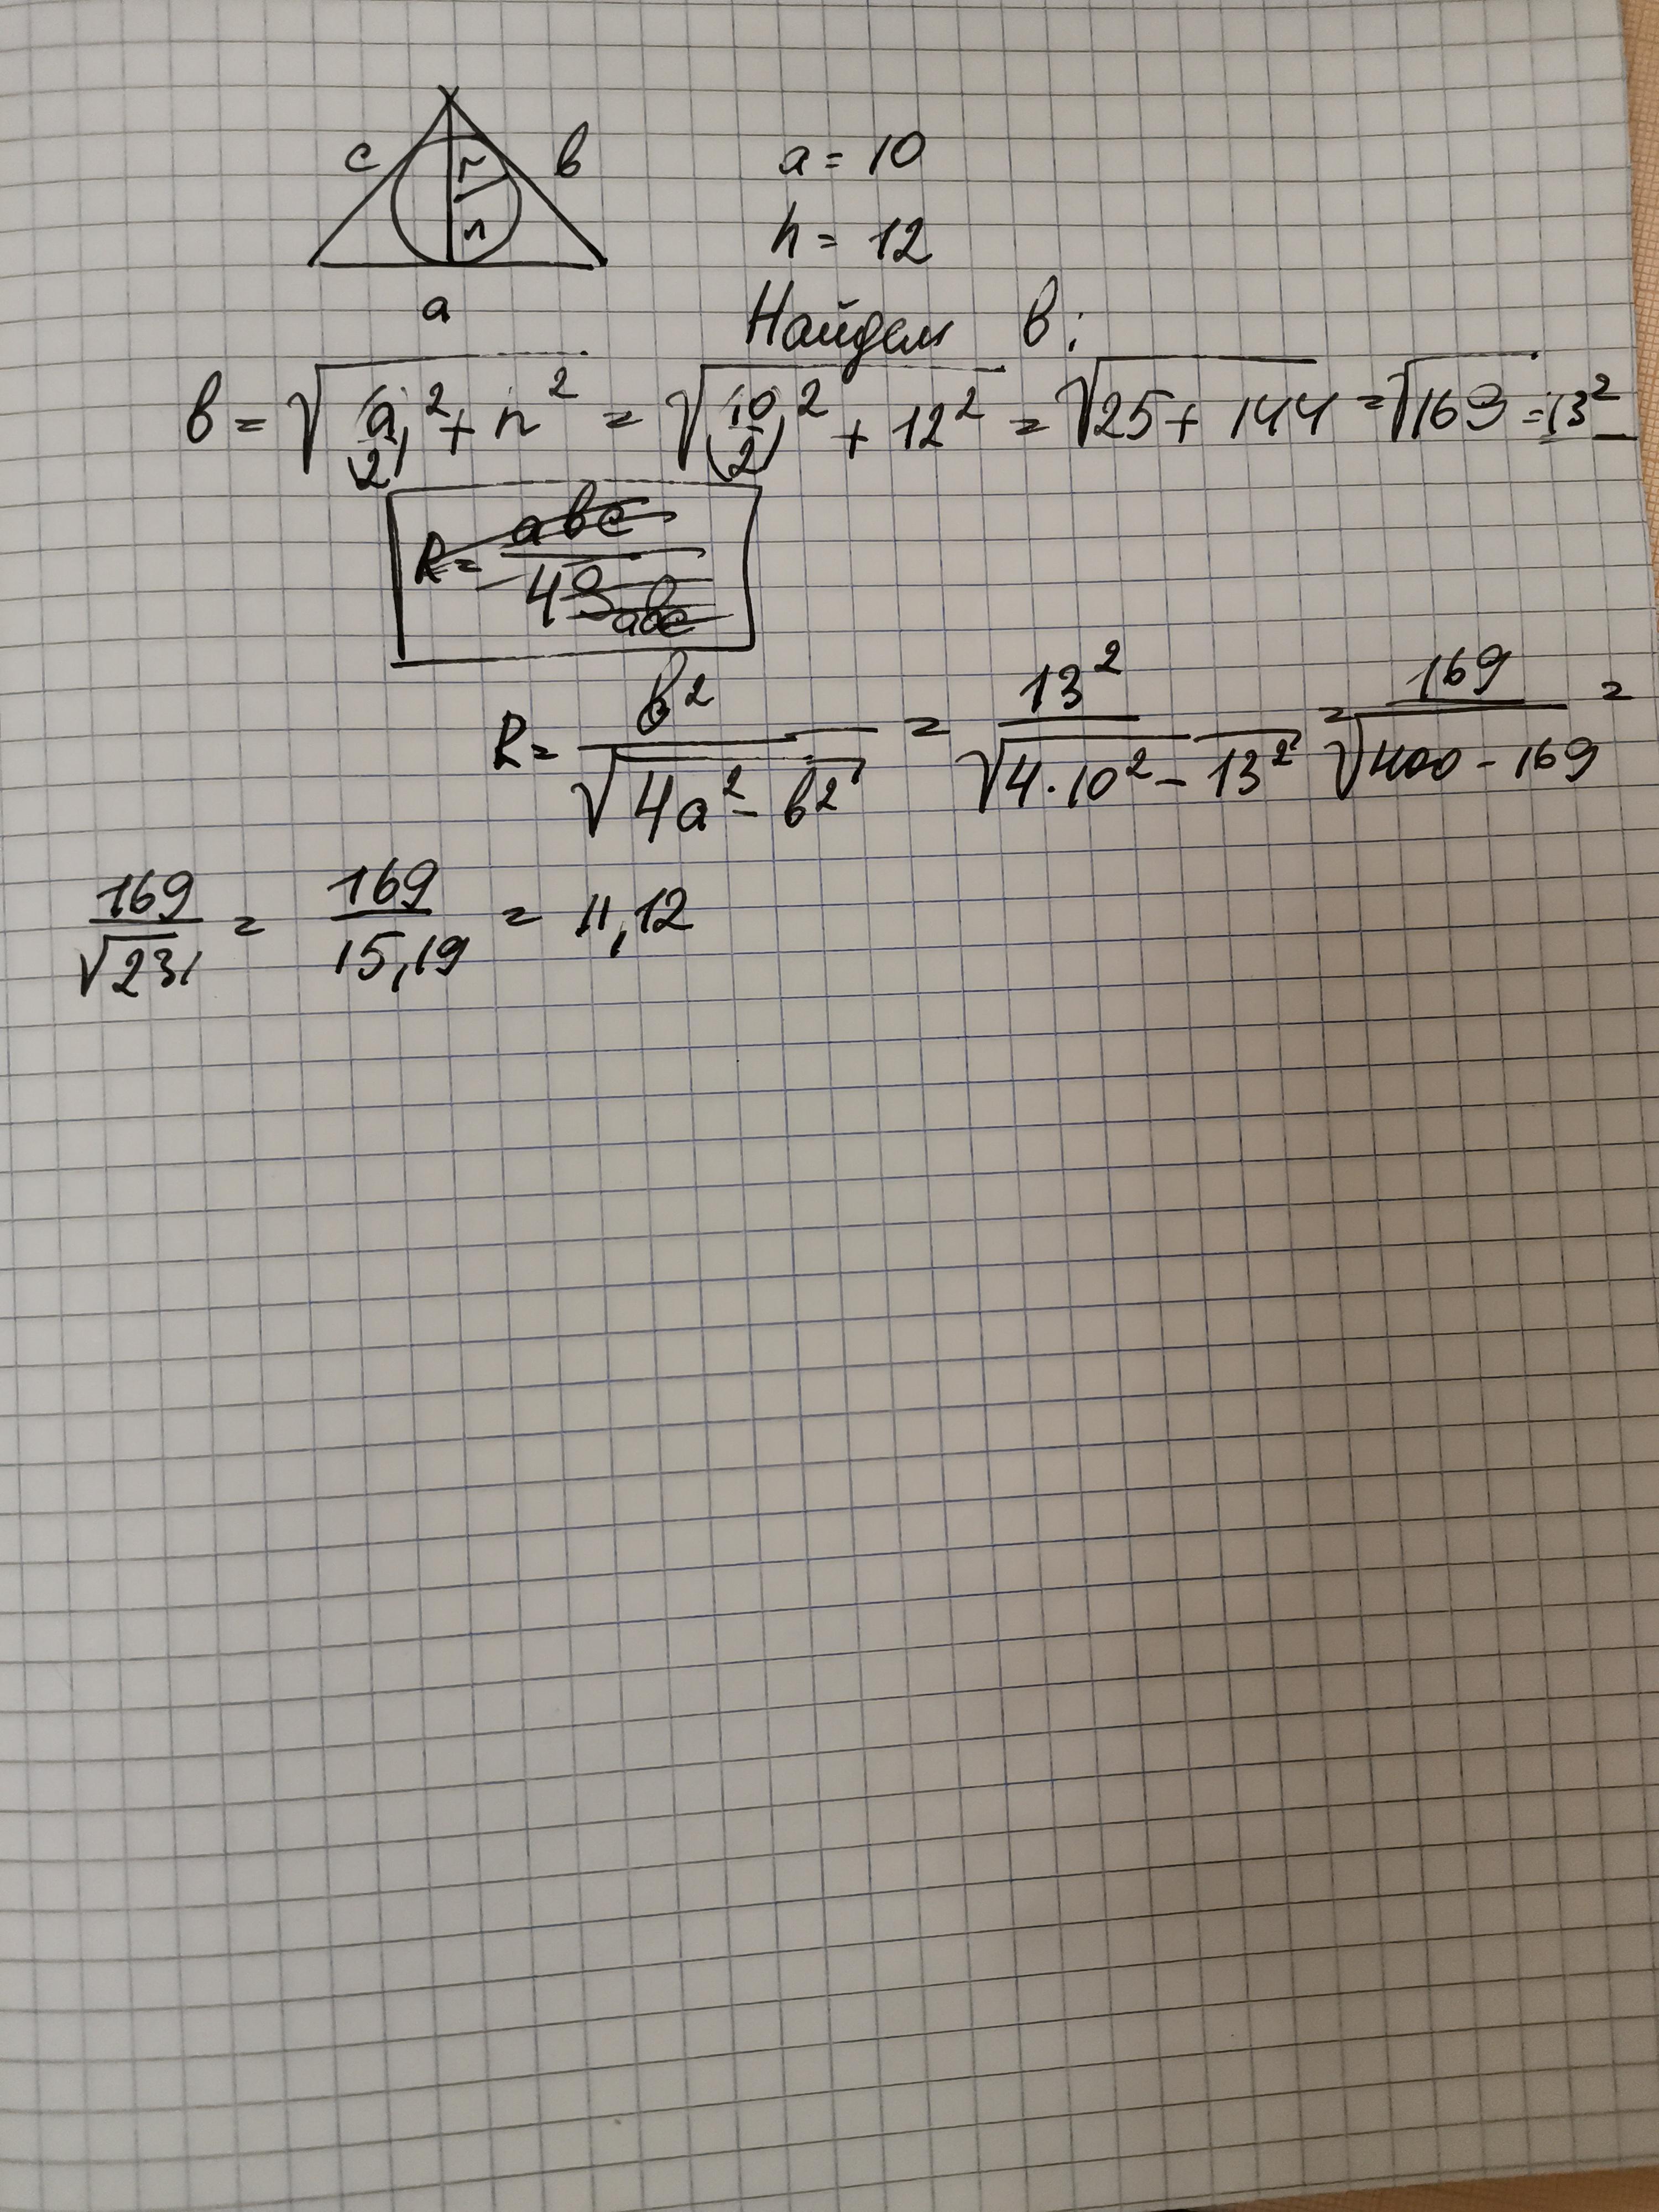 c r в a = 10
n h = 12
a Найдем в:
в = √(a/2)² + h² = √(10/2)² + 12² = √25 + 144 = √169 = 13²
R = aвc/4Saвc
R = в²/√4a² - в² = 13²/√4·10² - 13² = 169/√400 - 169 =
169/√231 = 169/15,19 = 11,12